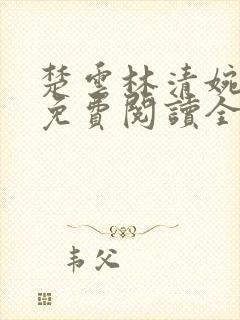 楚雲林清婉
免費閱讀全
韦父